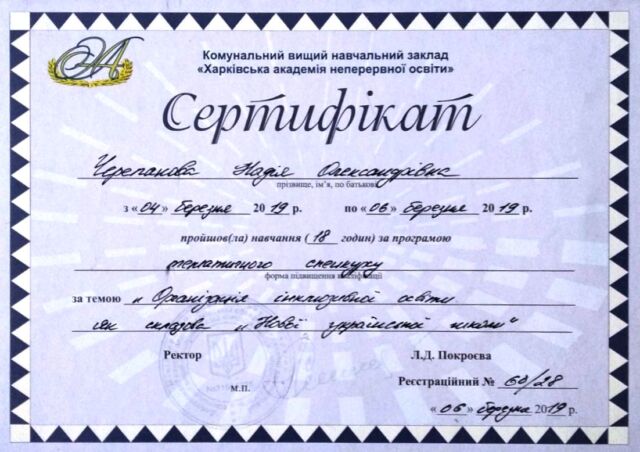 Комунальний вищий навчальний заклад
«Харківська академія неперервної освіти»
Сертифікат
Черепанова Надія Олександрівна
прізвище, ім'я, по батькові
з «04» березня 2019 р. по «06» березня 2019 р.
пройшов(ла) навчання (18 годин) за програмою
тематичного спецкурсу
форма підвищення кваліфікації
за темою „Організація інклюзивної освіти
як складова „Нової української школи"
Ректор Л.Д. Покроєва
М.П.
Реєстраційний № 60/28
«06» березня 2019 р.